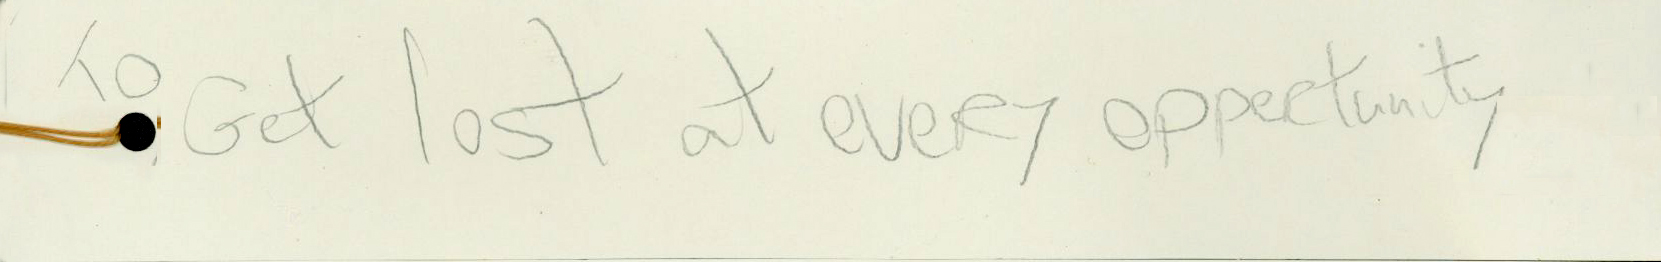 To Get lost at every oppertunity